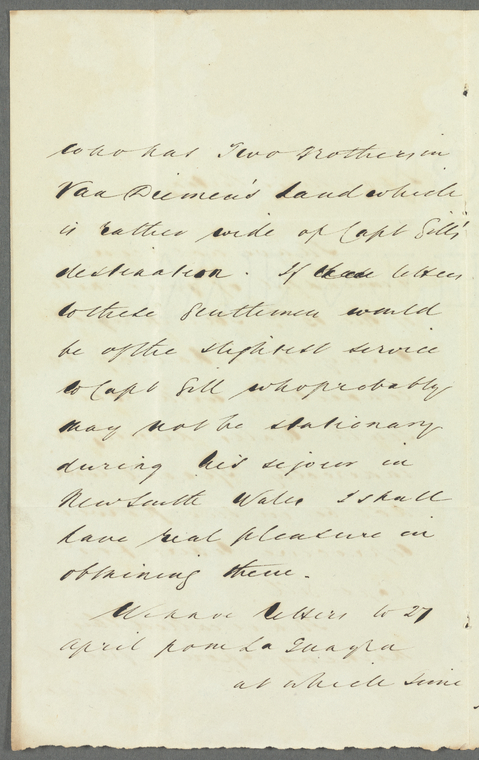 who has Two Brothers in
Van Diemen's Land which
is rather wide of Capt Gill's
destination. If these letters
to these Gentlemen would
be of the slightest service
to Capt Gill who probably
may not be stationary
during his sejour in
New South Wales I shall
have real pleasure in
obtaining them.
We have letters to 27
April from La Guayra
at which time